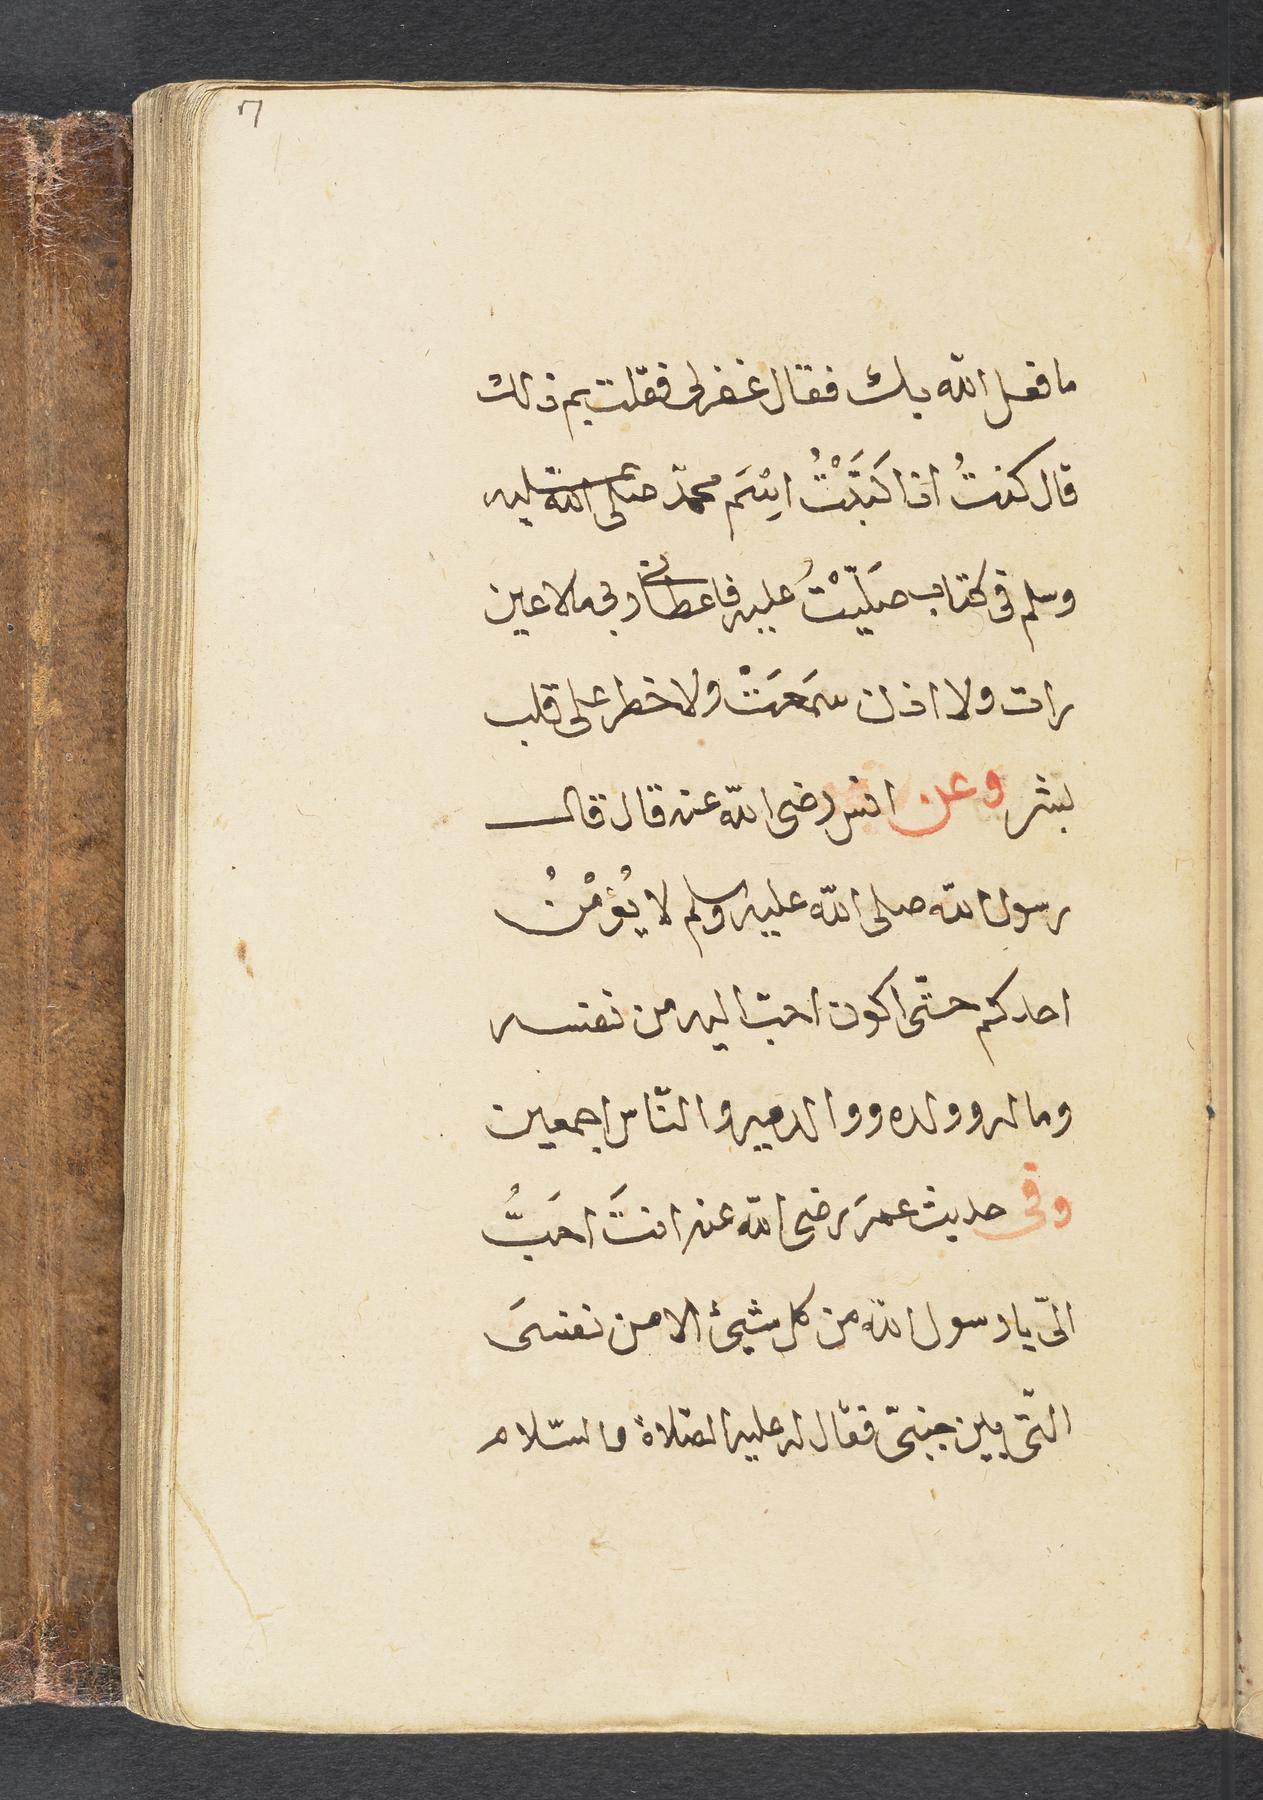 ٦
ما فعل الله بك فقال غفر لى فقلت بم ذلك
قال كنتُ اذا كَتَبْتُ اسْمَ محمّد صلى الله عليه
وسلم فى كتاب صَلَّيْتُ عليه فاعطانى ربى ما لا عين
رات ولا اذن سَمَعَتْ ولا خطر على قلب
بشر وعن انس رضى الله عنه قال قال
رسول الله صلى الله عليه وسلم لا يُؤمْنُ
احدكم حتّى اكون احبّ اليه من نفسه
وماله وولده ووالديه والنّاس اجمعين
وفى حديث عمرَ رضى الله عنه انتَ احَبُّ
الىّ يا رسول الله من كل شيئ الا من نفسىَ
الّتى بين جنبىّ فقال له عليه الصّلاة والسّلام